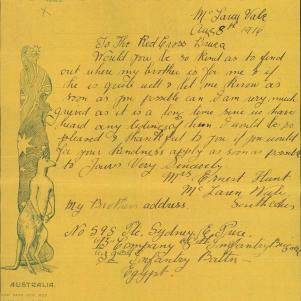 Mc Laren Vale
Aug 8th 1919
To The Red Cross
Would you be so kind as to find
out where my brother is for me & if
he is quite well & let me know as
soon as you possible can I am very much
as it is a long time since we have
heard any tidings of him I would be so
pleased & thank out to you if you would
for your kindness apply as soon as possible
to Yours Very Sincerely
Mrs Ernest Hunt
Mc Laren Vale
South
My Brothers address.
No 595 Pte. Sydney C
Company Infantry Brigade
Infantry Battn
Egypt.
AUSTRALIA